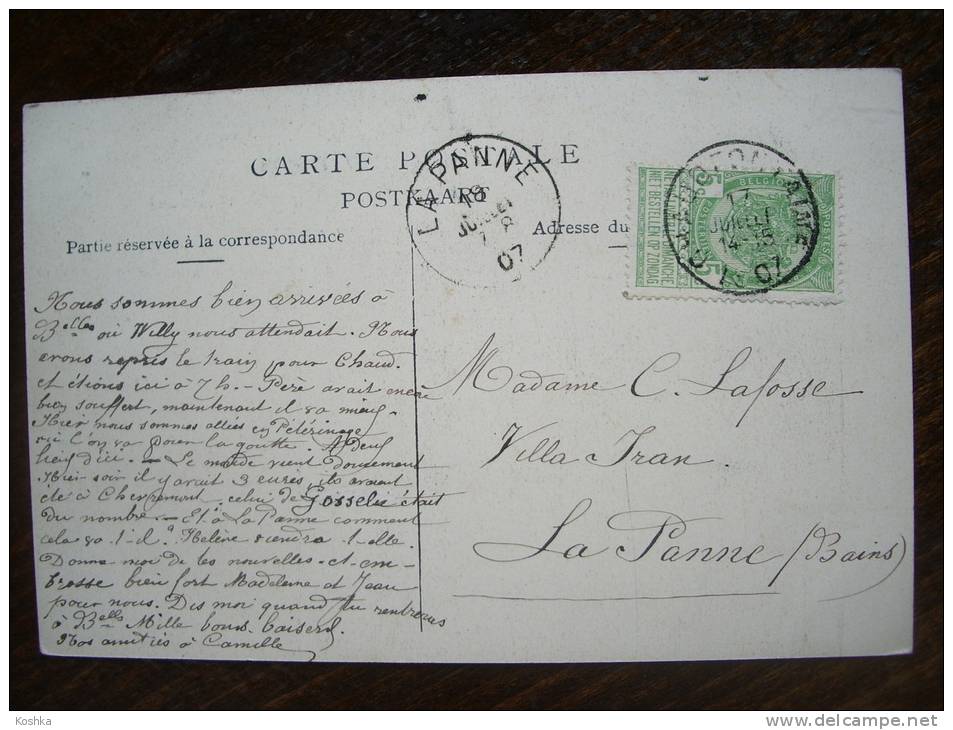 CARTE POSTALE
POSTKAART
LA PANNE
18
JUILLET
7-8
07
Partie réservée à la correspondance
Adresse du
BELGIQUE
17
JUILLET
14-15
07
NIET BESTELLEN OP ZONDAG
5
Nous sommes bien arrivées à
Belles où Willy nous attendait. Nous
avons repris le train pour Chaud.
et étions ici à 7 h. - Père avait encore
bien souffert, maintenant il va mieux.
Hier nous sommes allées en Pélérinage
où l'on va pour la goutte. A deux
lieux d'ici. - Le monde vient doucement
Hier soir il y avait 3 cures, ils avaient
été à Chevremont, celui de Gosselie était
du nombre. - Et à La Panne comment
cela va-t-il? Hélène viendra t-elle.
Donne moi de tes nouvelles et em-
brasse bien fort Madeleine et Jean
pour nous. Dis moi quand tu rentreras
à Belles Mille bons baisers.
Nos amitiés à Camille
Madame C. Lafosse
Villa Iran.
La Panne (Bains)
Koshka
www.delcampe.net